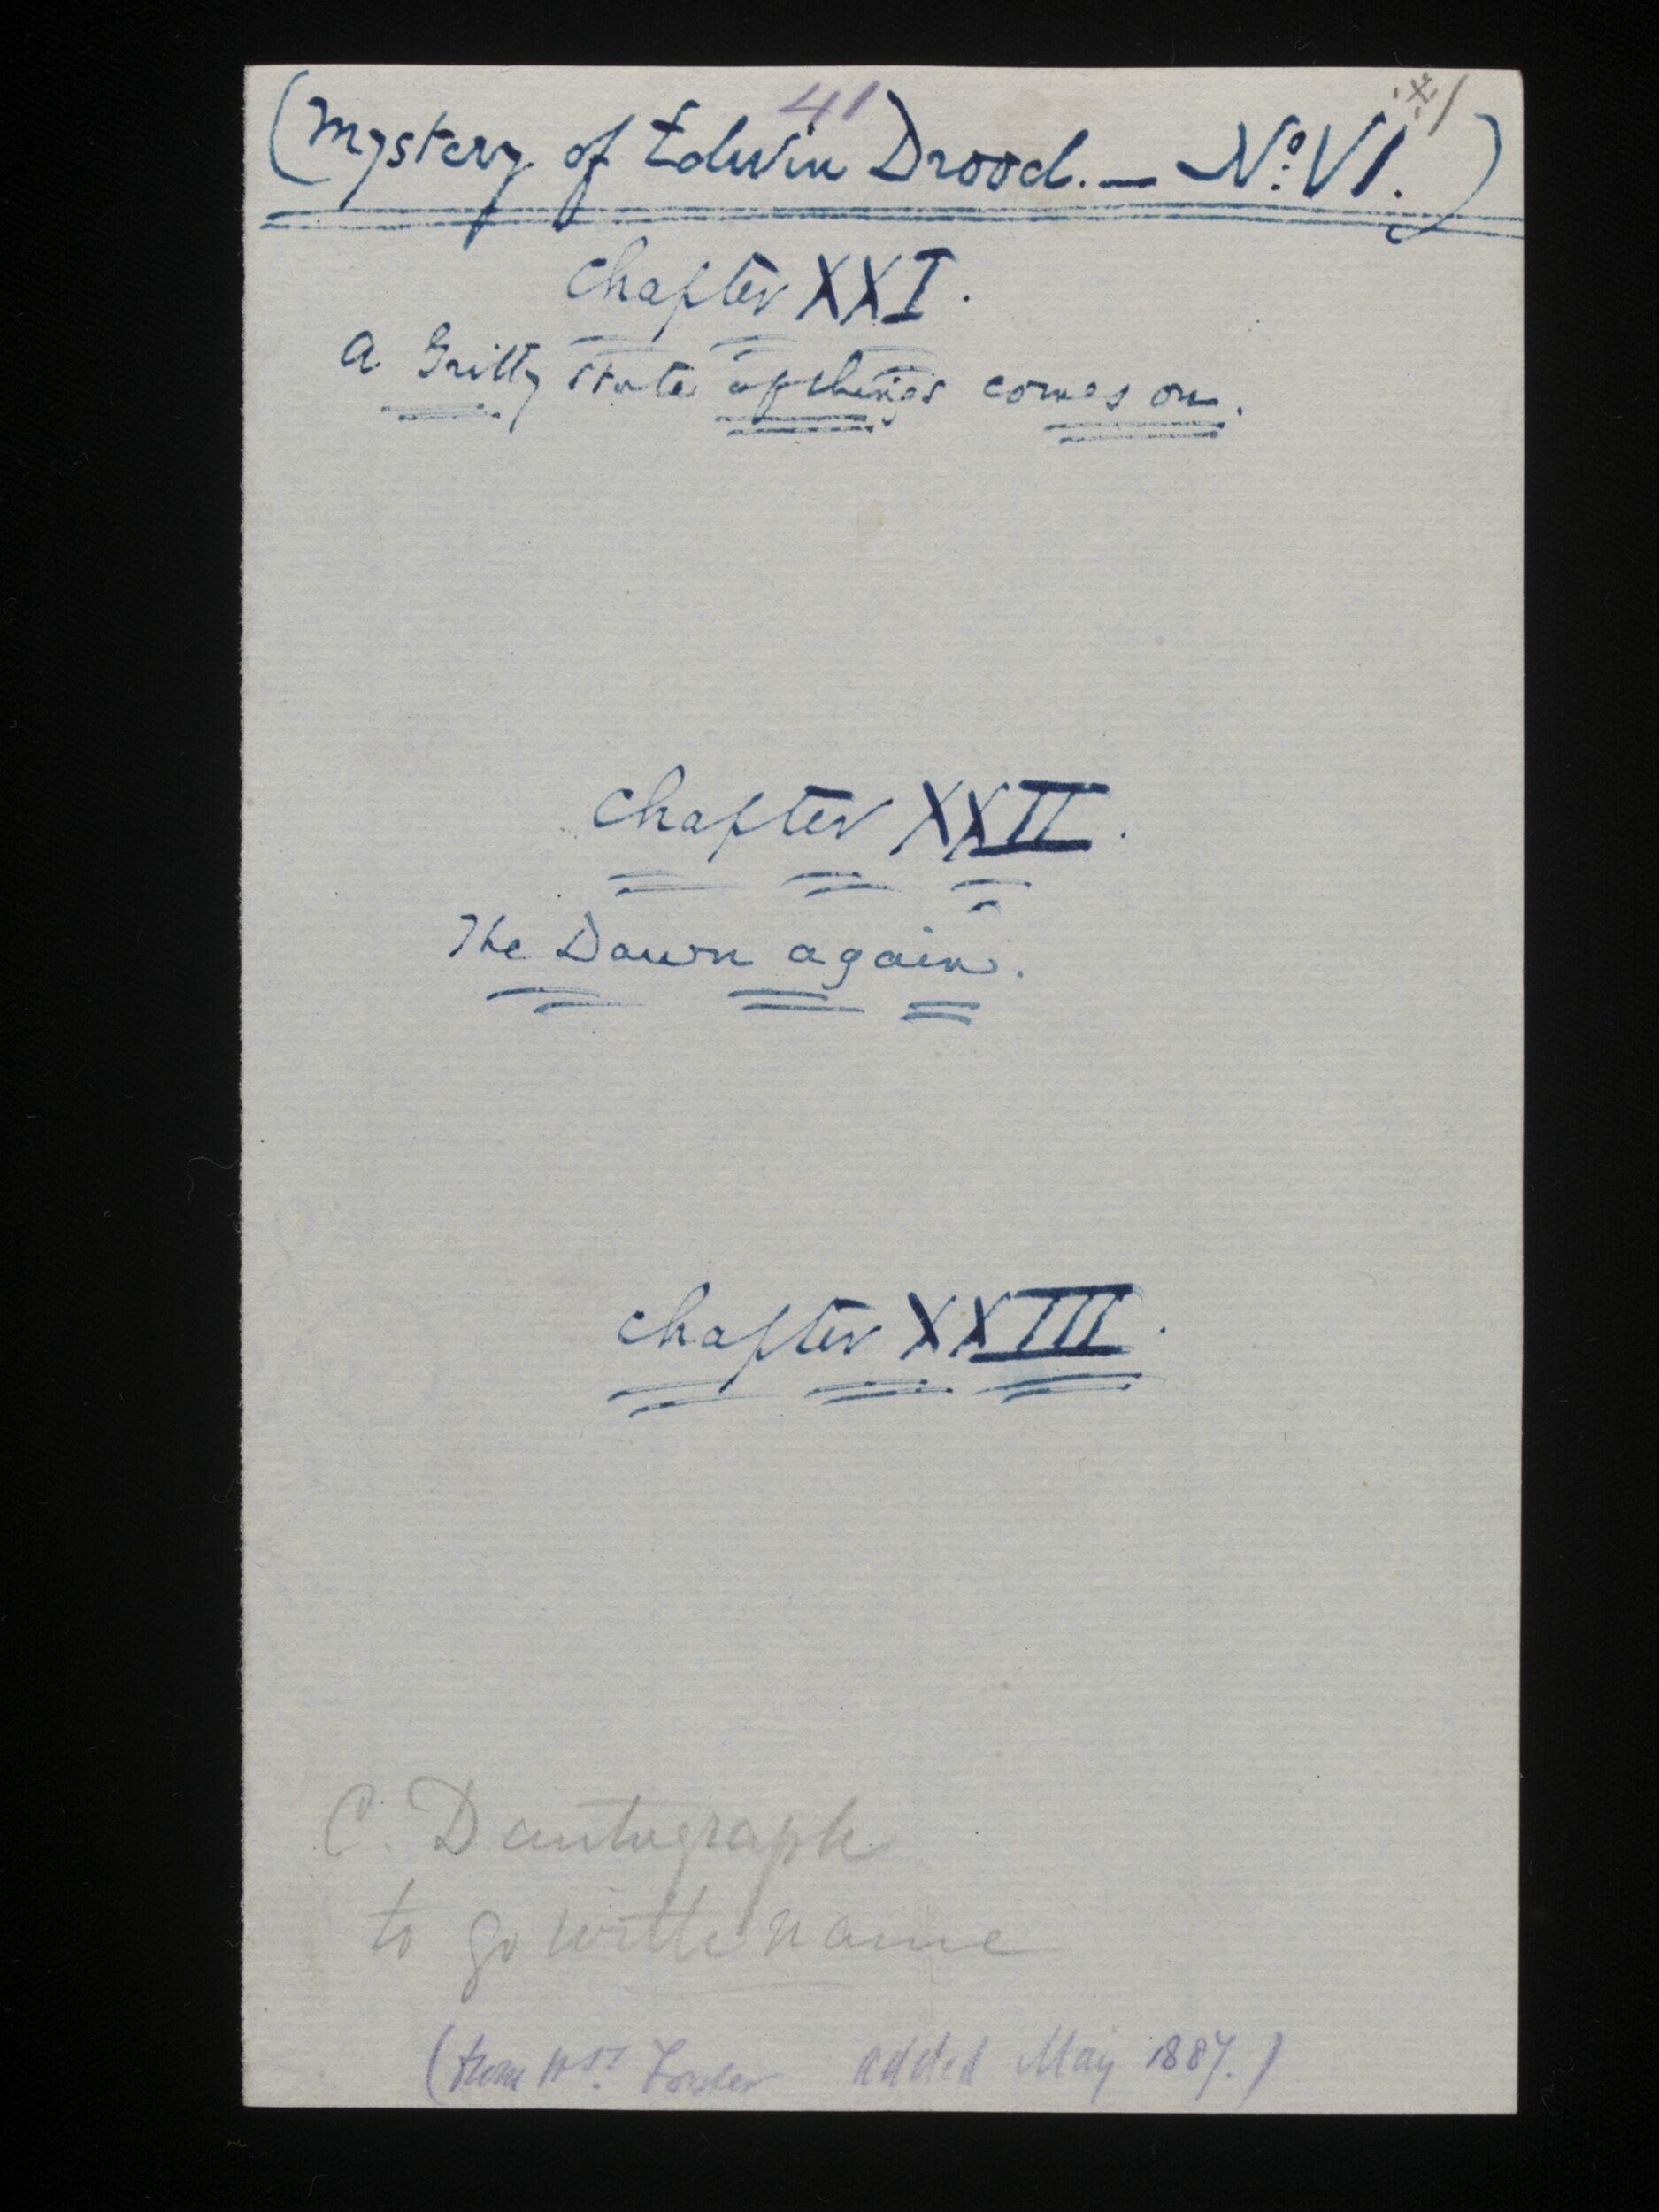 41
(Mystery of Edwin Drood. — No: VI.)
Chapter XXI.
A Gritty state of things comes on.
Chapter XXII.
The Dawn again.
Chapter XXIII.
C. D autograph
to go with name
(from added May 1887.)